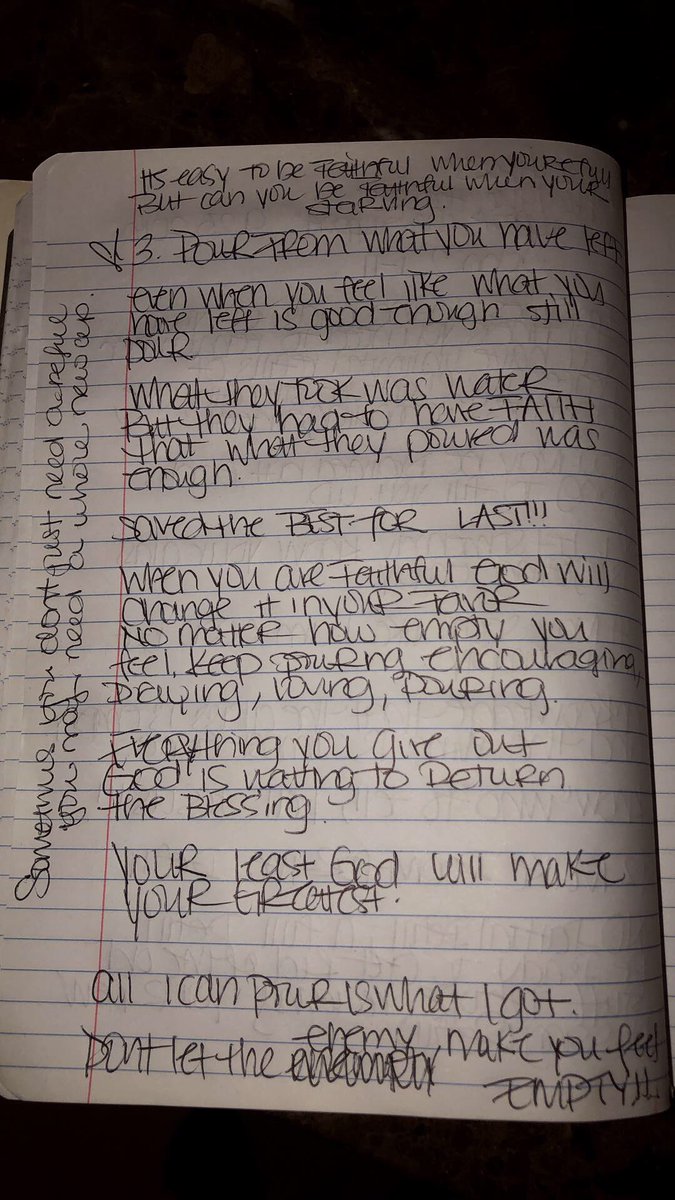 Its easy to be Faithful when you're full
But can you be faithful when your
starving.
3. Pour From what you have left
even when you feel like what you
have left is good enough still
pour
What they took was water
But they had to have FAITH
that what they poured was
enough.
Saved the BEST for LAST!!!
When you are Faithful God will
change it in your Favor
No matter how empty you
feel, keep pouring, encouraging,
Praying, loving, Pouring.
Everything you give out
God is waiting to Return
the Blessing.
Your least God will make
your Greatest.
All I can pour is what I got.
Dont let the enemy make you feel
EMPTY!!
Sometimes you dont just need a refill
you may need a whole new cup.